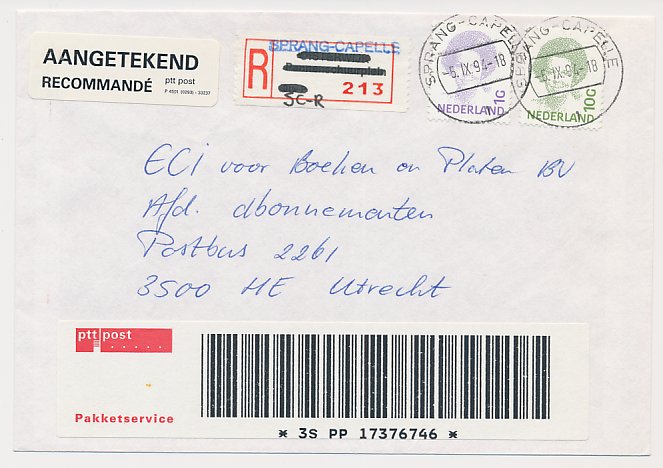 AANGETEKEND
RECOMMANDÉ ptt post
P 4501 (0293) - 33237
SPRANG-CAPELLE
R
213
SC-R
SPRANG-CAPELLE
-6.IX.94.-18
1
NEDERLAND 1G
SPRANG-CAPELLE
-6.IX.94.-18
1
NEDERLAND 10G
ECI voor Boeken en Platen BV
Afd. abonnementen
Postbus 2261
3500 HE Utrecht
ptt post
Pakketservice
* 3S PP 17376746 *